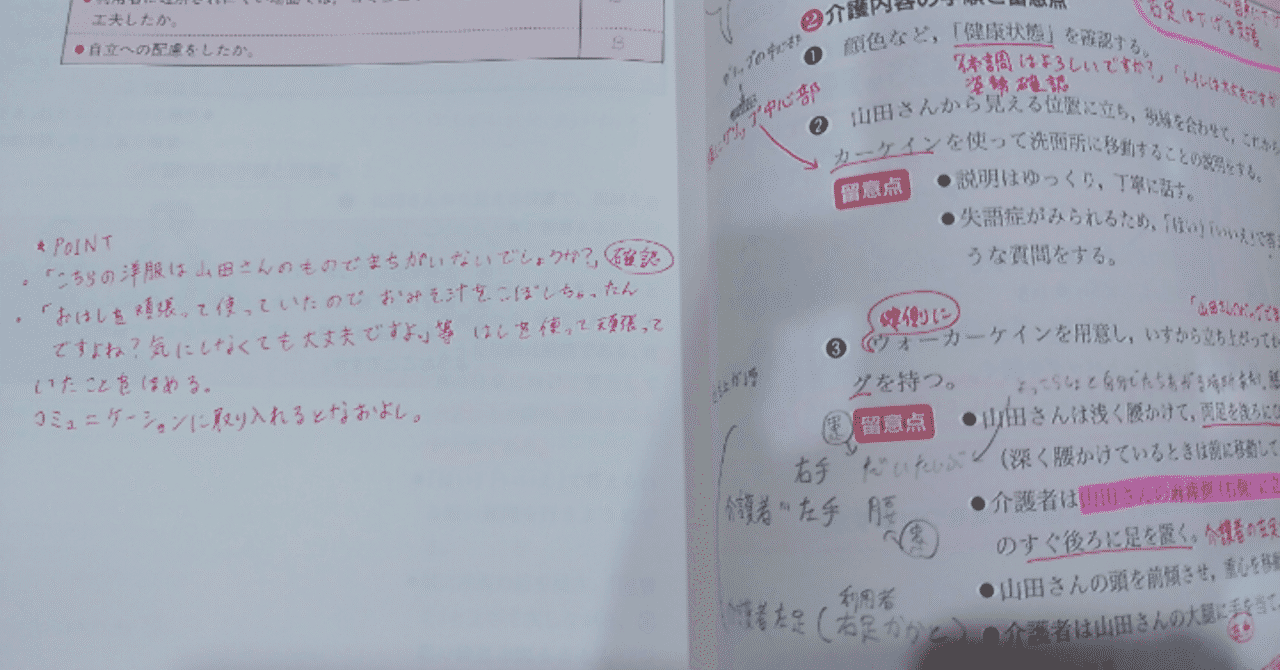 工夫したか。
●自立への配慮をしたか。
B
* POINT
・「こちらの洋服は山田さんのものでまちがいないでしょうか?」確認
・「おはしを頑張って使っていたので おみそ汁をこぼしちゃったん
ですよね?気にしなくても大丈夫ですよ。」等 はしを使って頑張って
いたことをほめる。
コミュニケーションに取り入れるとなおよし。
❷介護内容の手順と留意点
❶ 顔色など,「健康状態」を確認する。
「体調はよろしいですか?」
姿勢確認
中心部
❷ 山田さんから見える位置に立ち,視線を合わせて,これから
カーケインを使って洗面所に移動することの説明をする。
留意点
●説明はゆっくり,丁寧に話す。
●失語症がみられるため,「はい」「いいえ」で答
うな質問をする。
健側に
❸ ウォーカーケインを用意し,いすから立ち上がっても
グを持つ。
留意点
●山田さんは浅く腰かけて,両足を後ろにひ
(深く腰かけているときは前に移動して
右手 だいたいぶ
介護者 〃 左手 腰
●介護者は山田さんの麻痺
のすぐ後ろに足を置く。
●山田さんの頭を前傾させ,重心を移動
介護者左足(利用者
右足かかと)
●介護者は山田さんの大腿に手を当て